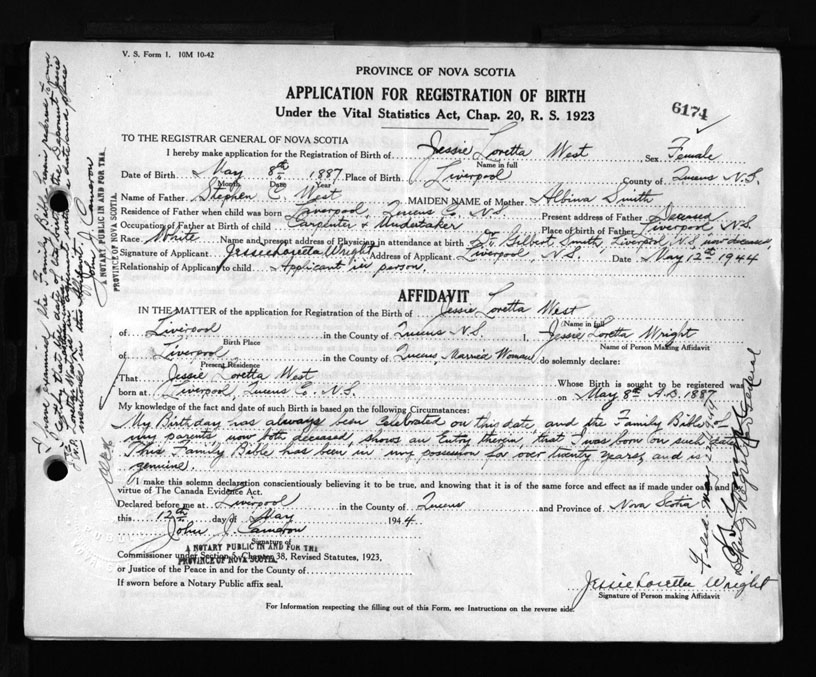 V. S. Form 1. 10M 10-42
PROVINCE OF NOVA SCOTIA
APPLICATION FOR REGISTRATION OF BIRTH
Under the Vital Statistics Act, Chap. 20, R. S. 1923
6174
TO THE REGISTRAR GENERAL OF NOVA SCOTIA
I hereby make application for the Registration of Birth of Jessie Loretta West Sex Female
Name in full
Date of Birth May 8th 1887 Place of Birth Liverpool County of Queens N.S.
Month Date Year
Name of Father Stephen C. West MAIDEN NAME of Mother Albina Smith
Residence of Father when child was born Liverpool, Queens Co. N.S. Present address of Father Deceased
Occupation of Father at Birth of child Carpenter & Undertaker Place of birth of Father Liverpool, N.S.
Race White Name and present address of Physician in attendance at birth Dr. Gilbert Smith, Liverpool, N.S. now deceased
Signature of Applicant Jessie Loretta Wright Address of Applicant Liverpool, N.S. Date May 12th 1944
Relationship of Applicant to child Applicant in person.
AFFIDAVIT
IN THE MATTER of the application for Registration of the Birth of Jessie Loretta West
(Name in full)
of Liverpool in the County of Queens N.S. I, Jessie Loretta Wright
Birth Place Name of Person Making Affidavit
of Liverpool in the County of Queens, Married Woman do solemnly declare:
Present Residence
That Jessie Loretta West Whose Birth is sought to be registered was
born at Liverpool, Queens Co. N.S. on May 8th A.D. 1887
My knowledge of the fact and date of such Birth is based on the following Circumstances:
My Birthday has always been celebrated on this date, and the Family Bible of
my parents, now both deceased, shows an Entry therein, that I was born on such date
This Family Bible has been in my possession for over twenty years, and is
genuine.
I make this solemn declaration conscientiously believing it to be true, and knowing that it is of the same force and effect as if made under oath and by
virtue of The Canada Evidence Act.
Declared before me at Liverpool in the County of Queens and Province of Nova Scotia
this 12th day of May 1944
John J. Cameron
Signature of
A NOTARY PUBLIC IN AND FOR THE
PROVINCE OF NOVA SCOTIA.
Commissioner under Section 5, Chapter 38, Revised Statutes, 1923,
or Justice of the Peace in and for the County of
If sworn before a Notary Public affix seal.
Jessie Loretta Wright
Signature of Person making Affidavit
For Information respecting the filling out of this Form, see Instructions on the reverse side.
I have examined the Family Bible herein referred to, and
certify that
John J. Cameron
A NOTARY PUBLIC IN AND FOR THE
PROVINCE OF NOVA SCOTIA.
Filed May